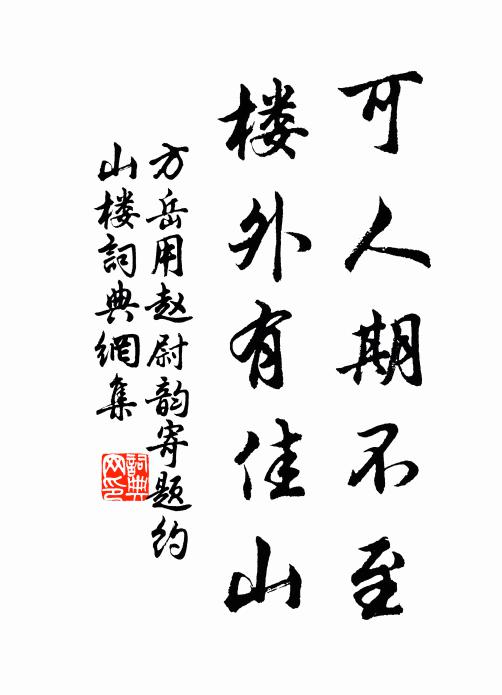 可人期不至
楼外有佳山
方岳用赵尉韵寄题约
山楼詞典網集
詞典
网印